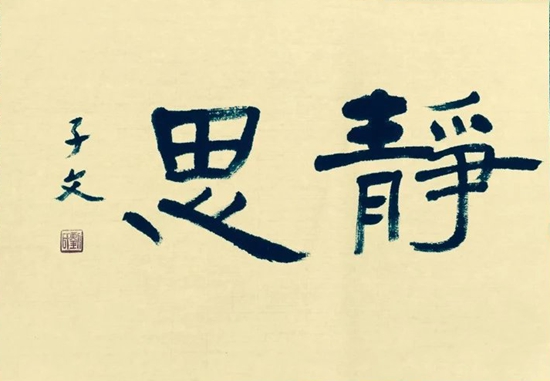 靜思
子文